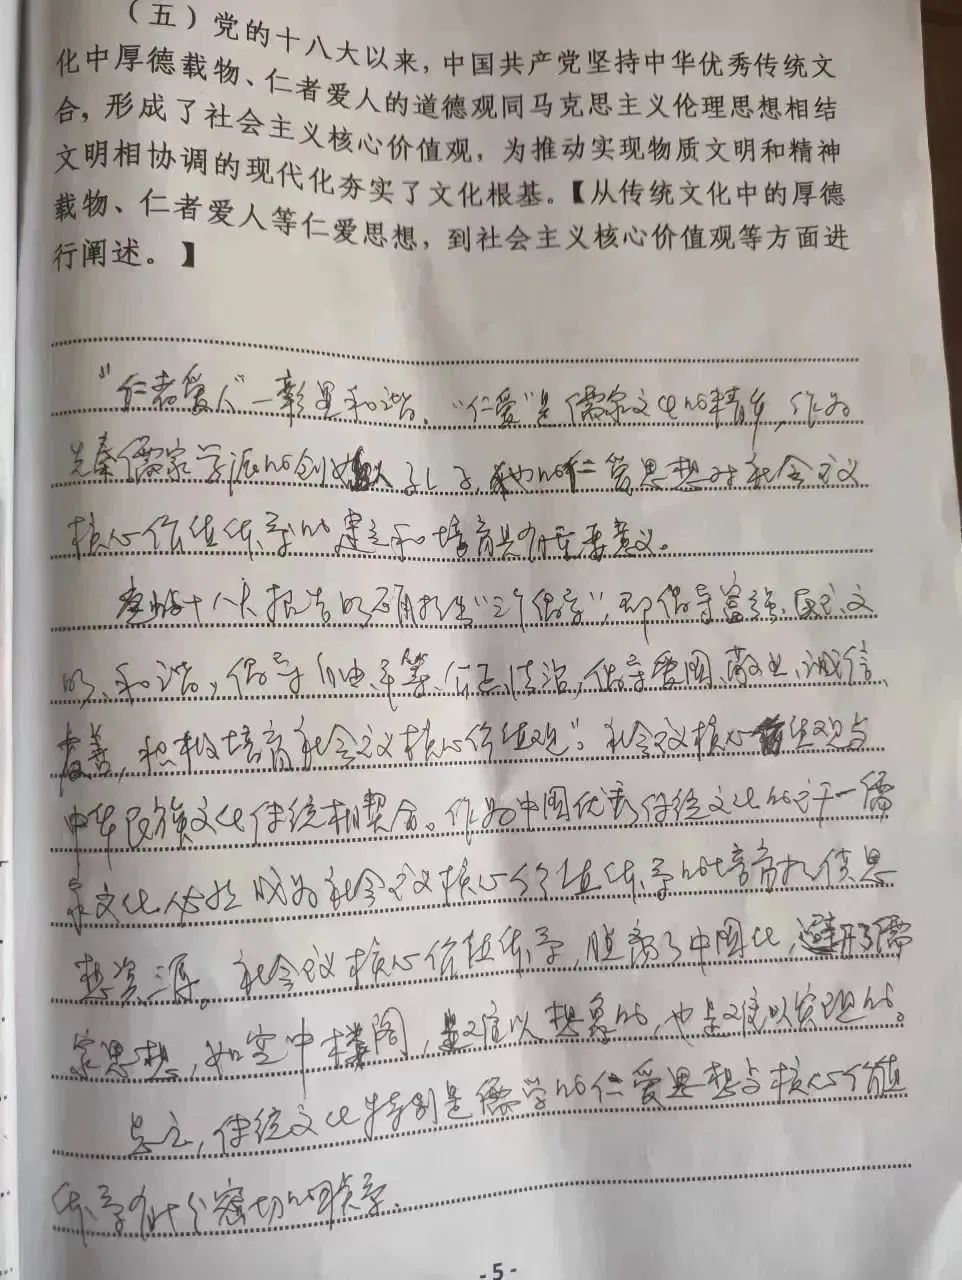 （五）党的十八大以来，中国共产党坚持中华优秀传统文
化中厚德载物、仁者爱人的道德观同马克思主义伦理思想相结
合，形成了社会主义核心价值观，为推动实现物质文明和精神
文明相协调的现代化夯实了文化根基。【从传统文化中的厚德
载物、仁者爱人等仁爱思想，到社会主义核心价值观等方面进
行阐述。】
“仁者爱人”—彰显和谐。“仁爱”是儒家文化的精华，作为
先秦儒家学派的创始人孔子，他的仁爱思想对社会主义
核心价值体系的建立和培育具有重要意义。
党的十八大报告明确提出“三个倡导”，即倡导富强、民主、文
明、和谐，倡导自由、平等、公正、法治，倡导爱国、敬业、诚信、
友善，积极培育社会主义核心价值观”。社会主义核心价值观与
中华民族文化传统相契合。作为中国优秀传统文化的主干—儒
家文化必然成为社会主义核心价值体系的培育的思
想资源。社会主义核心价值体系，脱离了中国化，避开了儒
家思想，如空中楼阁，是难以想象的，也是难以实现的。
总之，传统文化特别是儒学的仁爱思想与核心价值
体系有十分密切的关系.
- 5 -